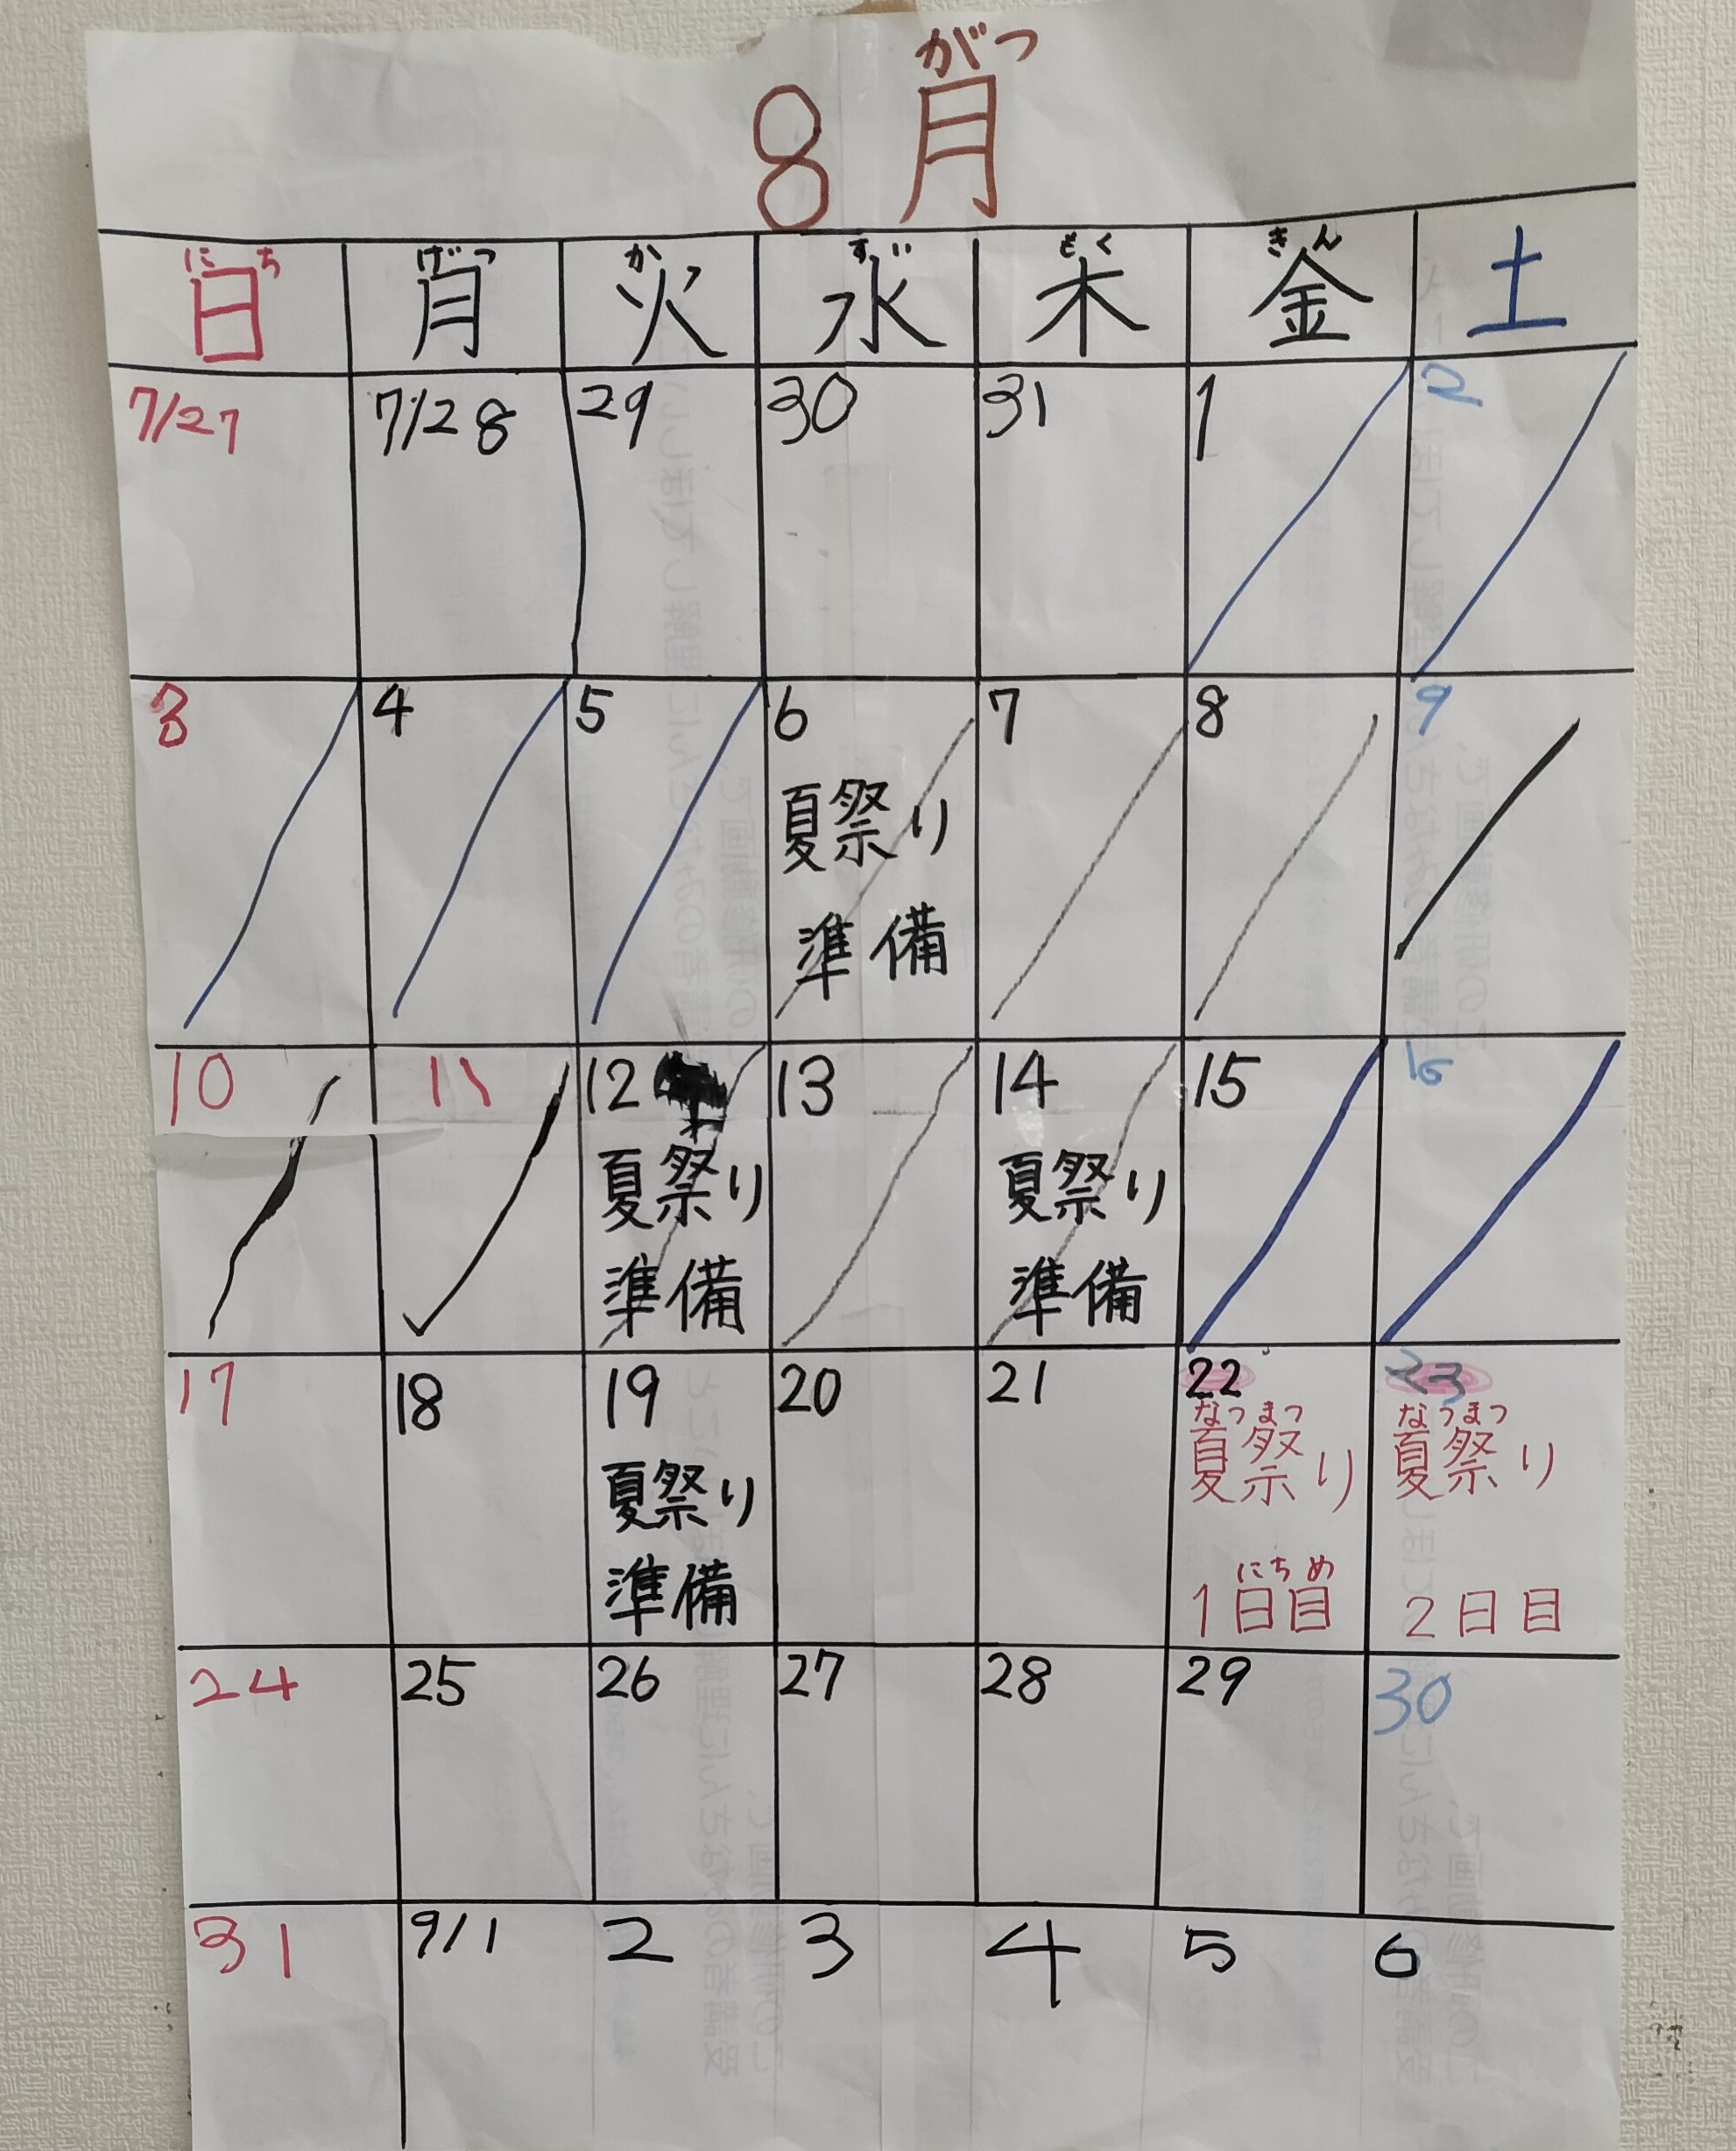 がつ
8月
にち げつ か すい もく きん
日 月 火 水 木 金 土
7/27 7/28 29 30 31 1 2
3 4 5 6 7 8 9
夏祭り
準備
10 11 12 13 14 15 16
夏祭り 夏祭り
準備 準備
17 18 19 20 21 22 23
なつまつ なつまつ
夏祭り 夏祭り 夏祭り
にちめ
準備 1日目 2日目
24 25 26 27 28 29 30
31 9/1 2 3 4 5 6